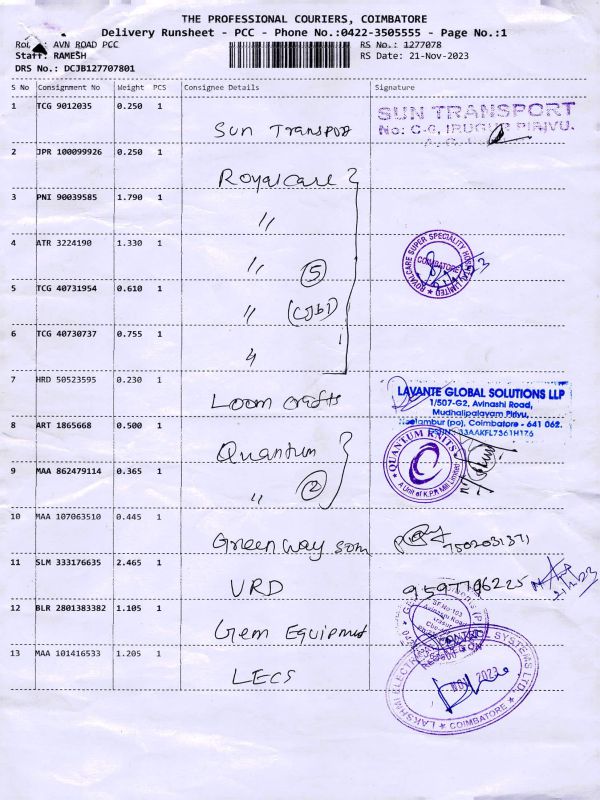 THE PROFESSIONAL COURIERS, COIMBATORE
Delivery Runsheet - PCC - Phone No.:0422-3505555 - Page No.:1
AVN ROAD PCC
RS No.: 1277078
Staff: RAMESH
RS Date: 21-Nov-2023
DRS No.: DCJB127707801
S No Consignment No Weight PCS Consignee Details Signature
1 TCG 9012035 0.250 1
Sun Transport
SUN TRANSPORT
No: C-6, IRUGUR PIRIVU.
2 JPR 100099926 0.250 1
Royalcare
3 PNI 90039585 1.790 1
"
4 ATR 3224190 1.330 1
" 5
ROYALCARE SUPER SPECIALITY HOSPITAL LIMITED
COIMBATORE
5 TCG 40731954 0.610 1
"
6 TCG 40730737 0.755 1
"
7 HRD 50523595 0.230 1
Loom crafts
LAVANTE GLOBAL SOLUTIONS LLP
1/507-G2, Avinashi Road,
Mudhalipalayam Pirivu,
Neelambur (po), Coimbatore - 641 062.
8 ART 1865668 0.500 1
Quantum
QUANTUM KNITS
A Unit of K.P.R Mill Limited
9 MAA 862479114 0.365 1
" 2
10 MAA 107063510 0.445 1
Greenway
7502031371
11 SLM 333176635 2.465 1
VRD
9597196225
21/11/23
12 BLR 2801383382 1.105 1
Gem Equipment
13 MAA 101416533 1.205 1
LECS
LAKSHMI ELECTRICAL CONTROL SYSTEMS LTD.
NOV 2023
COIMBATORE